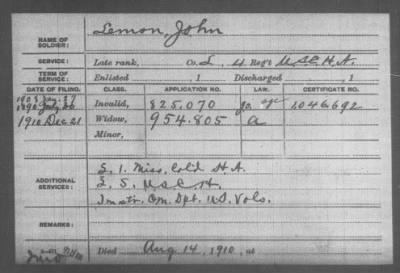 NAME OF SOLDIER: Lemon, John
SERVICE: Late rank, Co. L, 4 Reg't U.S.C.H.A.
TERM OF SERVICE: Enlisted , 1 Discharged , 1
DATE OF FILING. CLASS. APPLICATION NO. LAW. CERTIFICATE NO.
1907 Jan. 27
1890 July 26 Invalid, 825.070 1046.692
1910 Dec 21 Widow, 954.805 a
Minor,
ADDITIONAL SERVICES: L. 1. Miss. Cold H.A.
L. 5. U.S.C.H.
Tmstr. Qm. Dpt. U.S. Vols.
REMARKS:
Died Aug 14, 1910, at